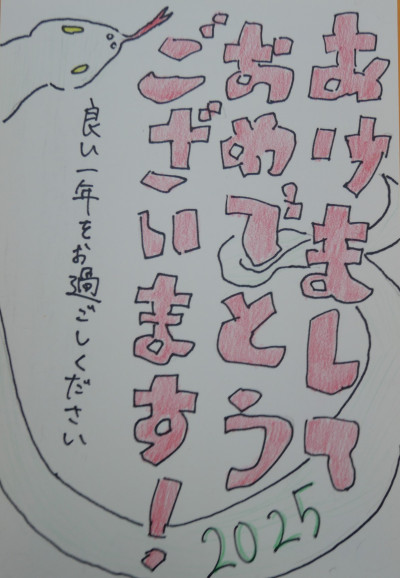 あけまして
おめでとう
ございます!
良い一年をお過ごしください
2025